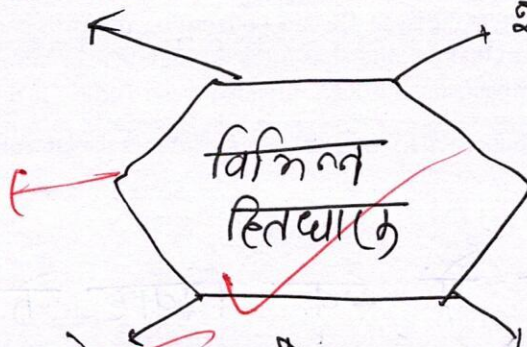 विभिन्न
हितधारक